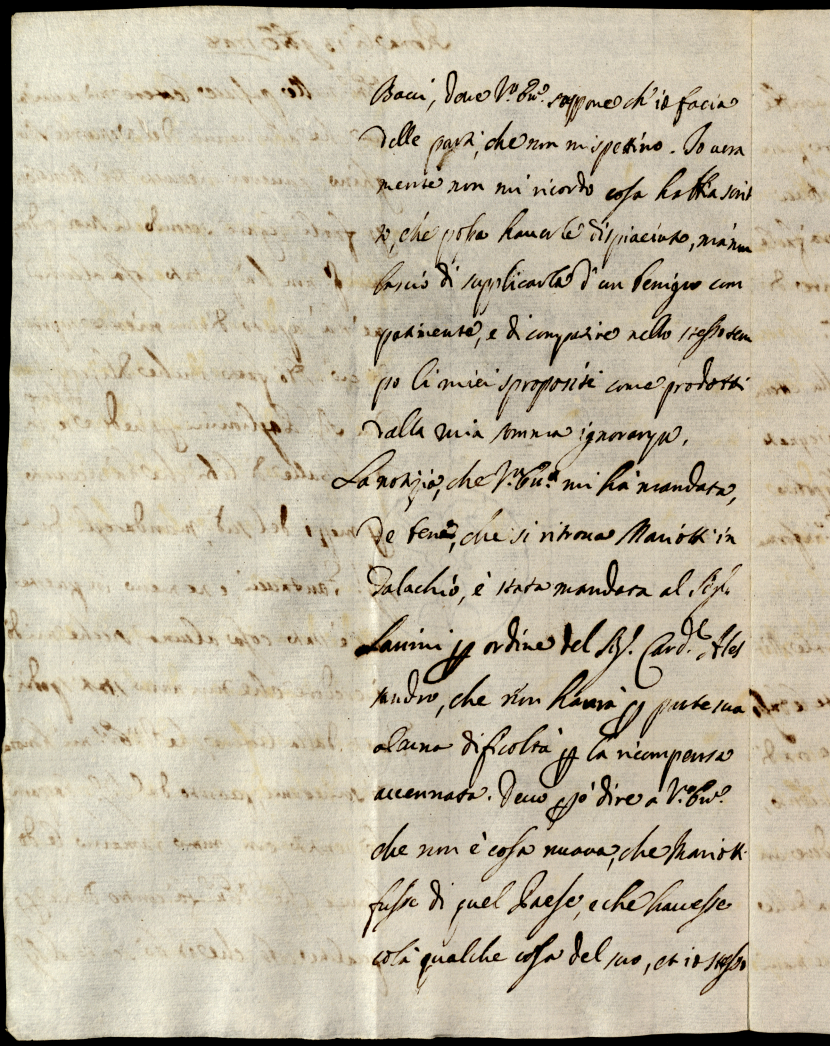 Bacci, doue V. Em. suppone ch'io facia
delle parti, che non mi spettino. Io uera
mente non mi ricordo cosa habbia scrit
to, che possa hauerle dispiaciuto, mà non
lascio di supplicarla d'un benigno com
patimento, e di compatire nello stesso tem
po li miei spropositi come prodotti
dalla mia somma ignoranza.
La notizia, che V. Em. mi hà mandata,
de beni, che si ritroua Mariotti in
Valachio, è stata mandata al Sig.
Lanini p ordine del Sig. Card. Ales
sandro, che non haurà p parte sua
alcuna dificoltà p la ricompensa
accennata. Deuo pò dire a V. Em.
che non è cosa nuoua, che Mariotti
fusse di quel Paese, e che hauesse
colà qualche cosa del suo, et io stesso